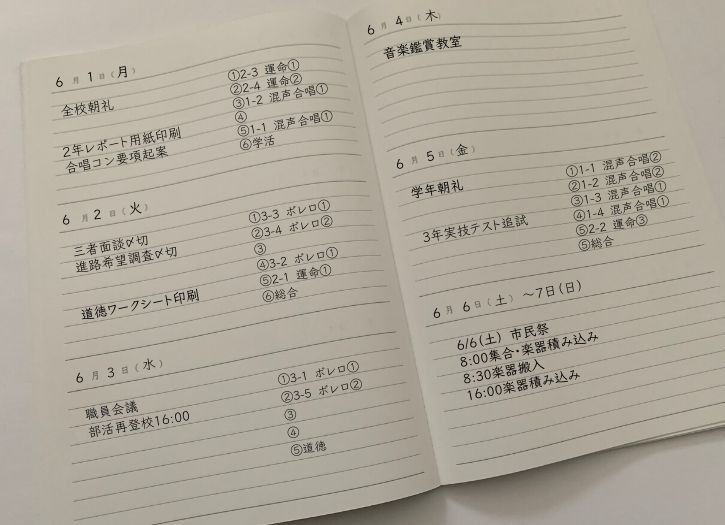 6月1日(月)
全校朝礼
2年レポート用紙印刷
合唱コン要項起案
①2-3 運命①
②2-4 運命②
③1-2 混声合唱①
④
⑤1-1 混声合唱①
⑥学活
6月2日(火)
三者面談〆切
進路希望調査〆切
道徳ワークシート印刷
①3-3 ボレロ①
②3-4 ボレロ②
③
④3-2 ボレロ①
⑤2-1 運命①
⑥総合
6月3日(水)
職員会議
部活再登校16:00
①3-1 ボレロ①
②3-5 ボレロ②
③
④
⑤道徳
6月4日(木)
音楽鑑賞教室
6月5日(金)
学年朝礼
3年実技テスト追試
①1-1 混声合唱②
②1-2 混声合唱②
③1-3 混声合唱①
④1-4 混声合唱①
⑤2-2 運命③
⑤総合
6月6日(土) ～7日(日)
6/6(土) 市民祭
8:00集合・楽器積み込み
8:30楽器搬入
16:00楽器積み込み